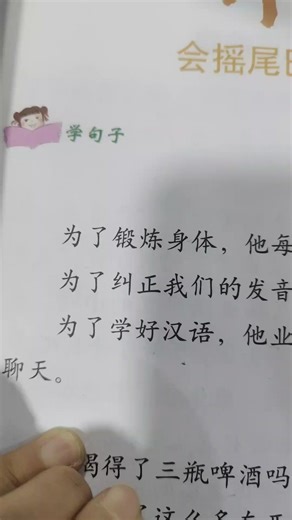 会摇尾巴
学句子
为了锻炼身体，他每
为了纠正我们的发音
为了学好汉语，他业
聊天。
喝得了三瓶啤酒吗
了这么多东西